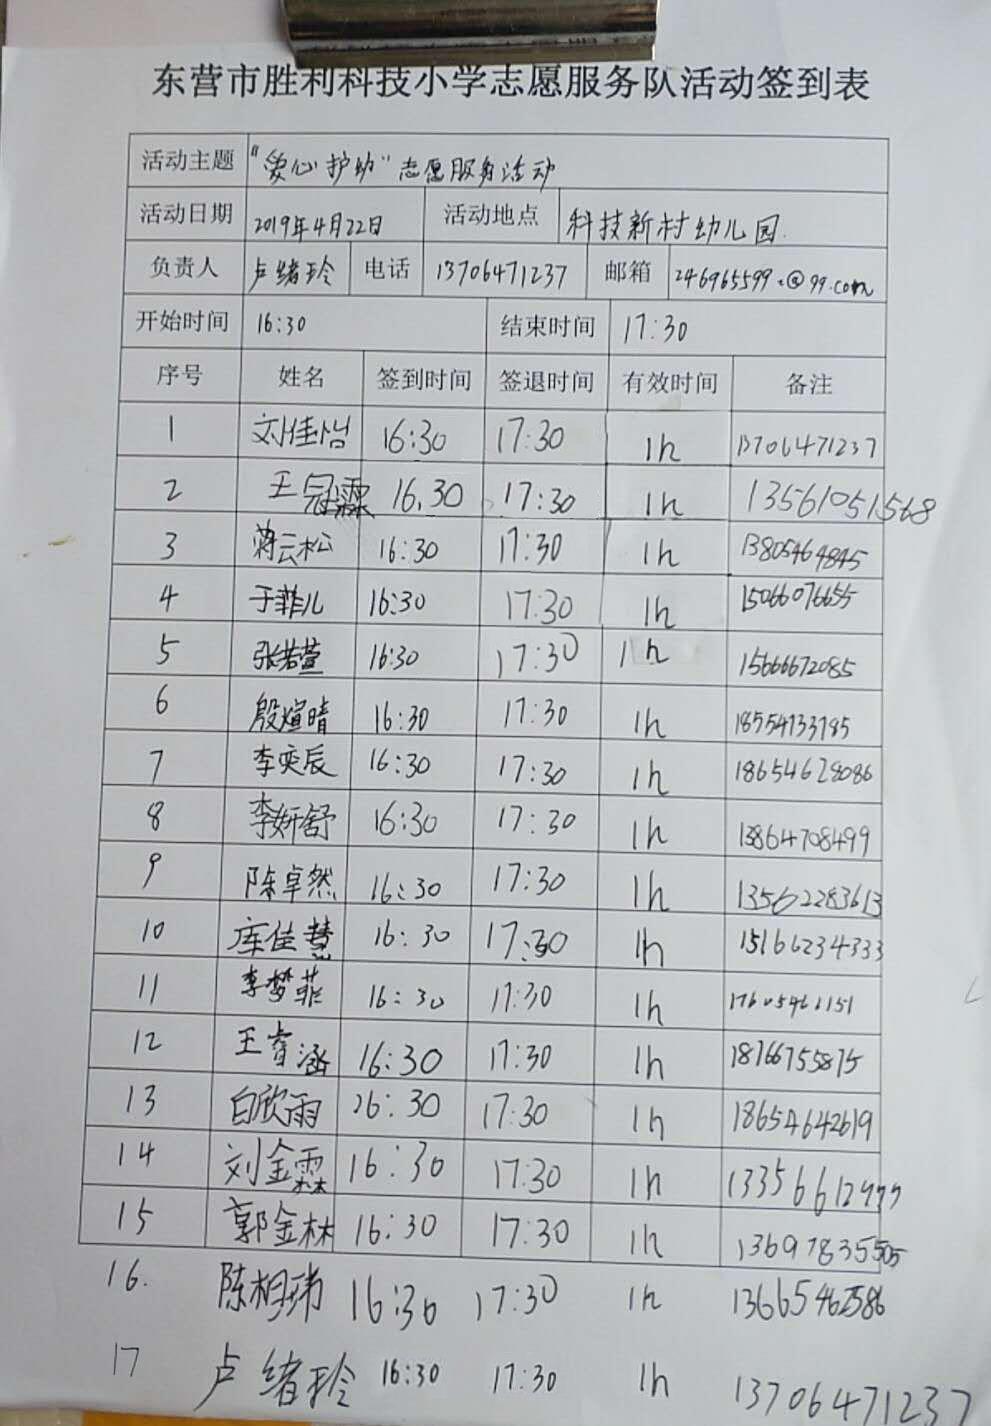 东营市胜利科技小学志愿服务队活动签到表
活动主题 "爱心护幼"志愿服务活动
活动日期 2019年4月22日 活动地点 科技新村幼儿园.
负责人 卢绪玲 电话 13706471237 邮箱 246965599.@99.com
开始时间 16:30 结束时间 17:30
序号 姓名 签到时间 签退时间 有效时间 备注
1 刘佳怡 16:30 17:30 1h 13706471237
2 王冠霖 16.30 17:30 1h 13561051568
3 蒋云松 16:30 17:30 1h 13805464845
4 于菲儿 16:30 17:30 1h 15066076655
5 张若萱 16:30 17:30 1h 15666672085
6 殷煊晴 16:30 17:30 1h 18554133785
7 李奕辰 16:30 17:30 1h 18654628086
8 李妍舒 16:30 17:30 1h 13864708499
9 陈卓然 16:30 17:30 1h 13562283613
10 库佳慧 16:30 17:30 1h 15166234333
11 李梦菲 16:30 17:30 1h 17605461151
12 王睿涵 16:30 17:30 1h 18766755875
13 白欣雨 26:30 17:30 1h 18654642619
14 刘金霖 16:30 17:30 1h
15 郭金林 16:30 17:30 1h 13697835505
16. 陈相玮 16:30 17:30 1h 13665462586
17 卢绪玲 16:30 17:30 1h 13706471237